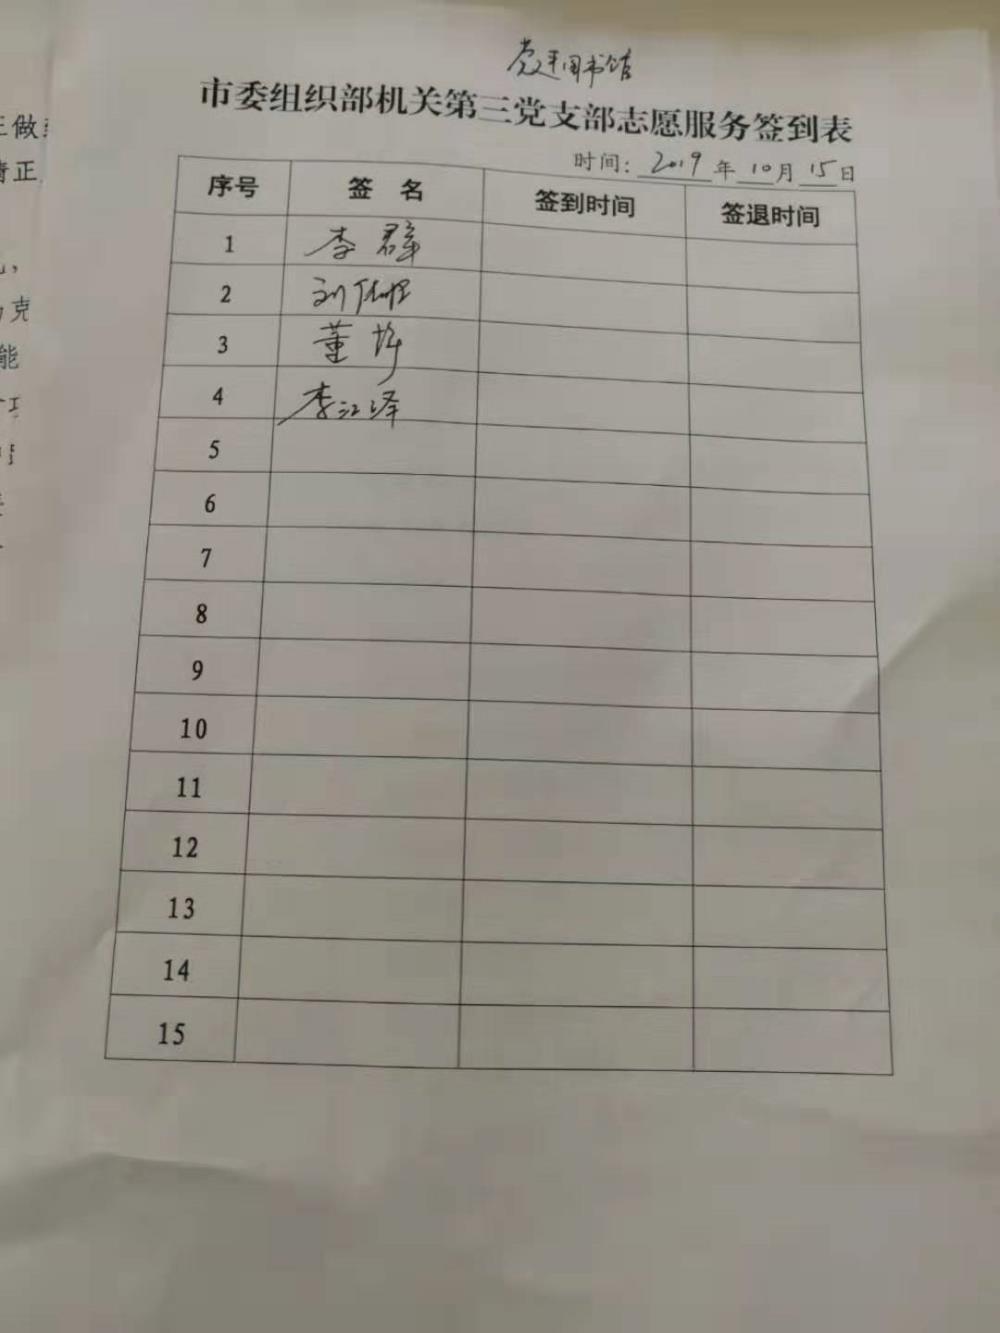 党建图书馆
市委组织部机关第三党支部志愿服务签到表
时间：2019年10月15日
序号 签名 签到时间 签退时间
1 李群
2 刘
3 董
4 李江泽
5
6
7
8
9
10
11
12
13
14
15
正做
清正
，
克
能